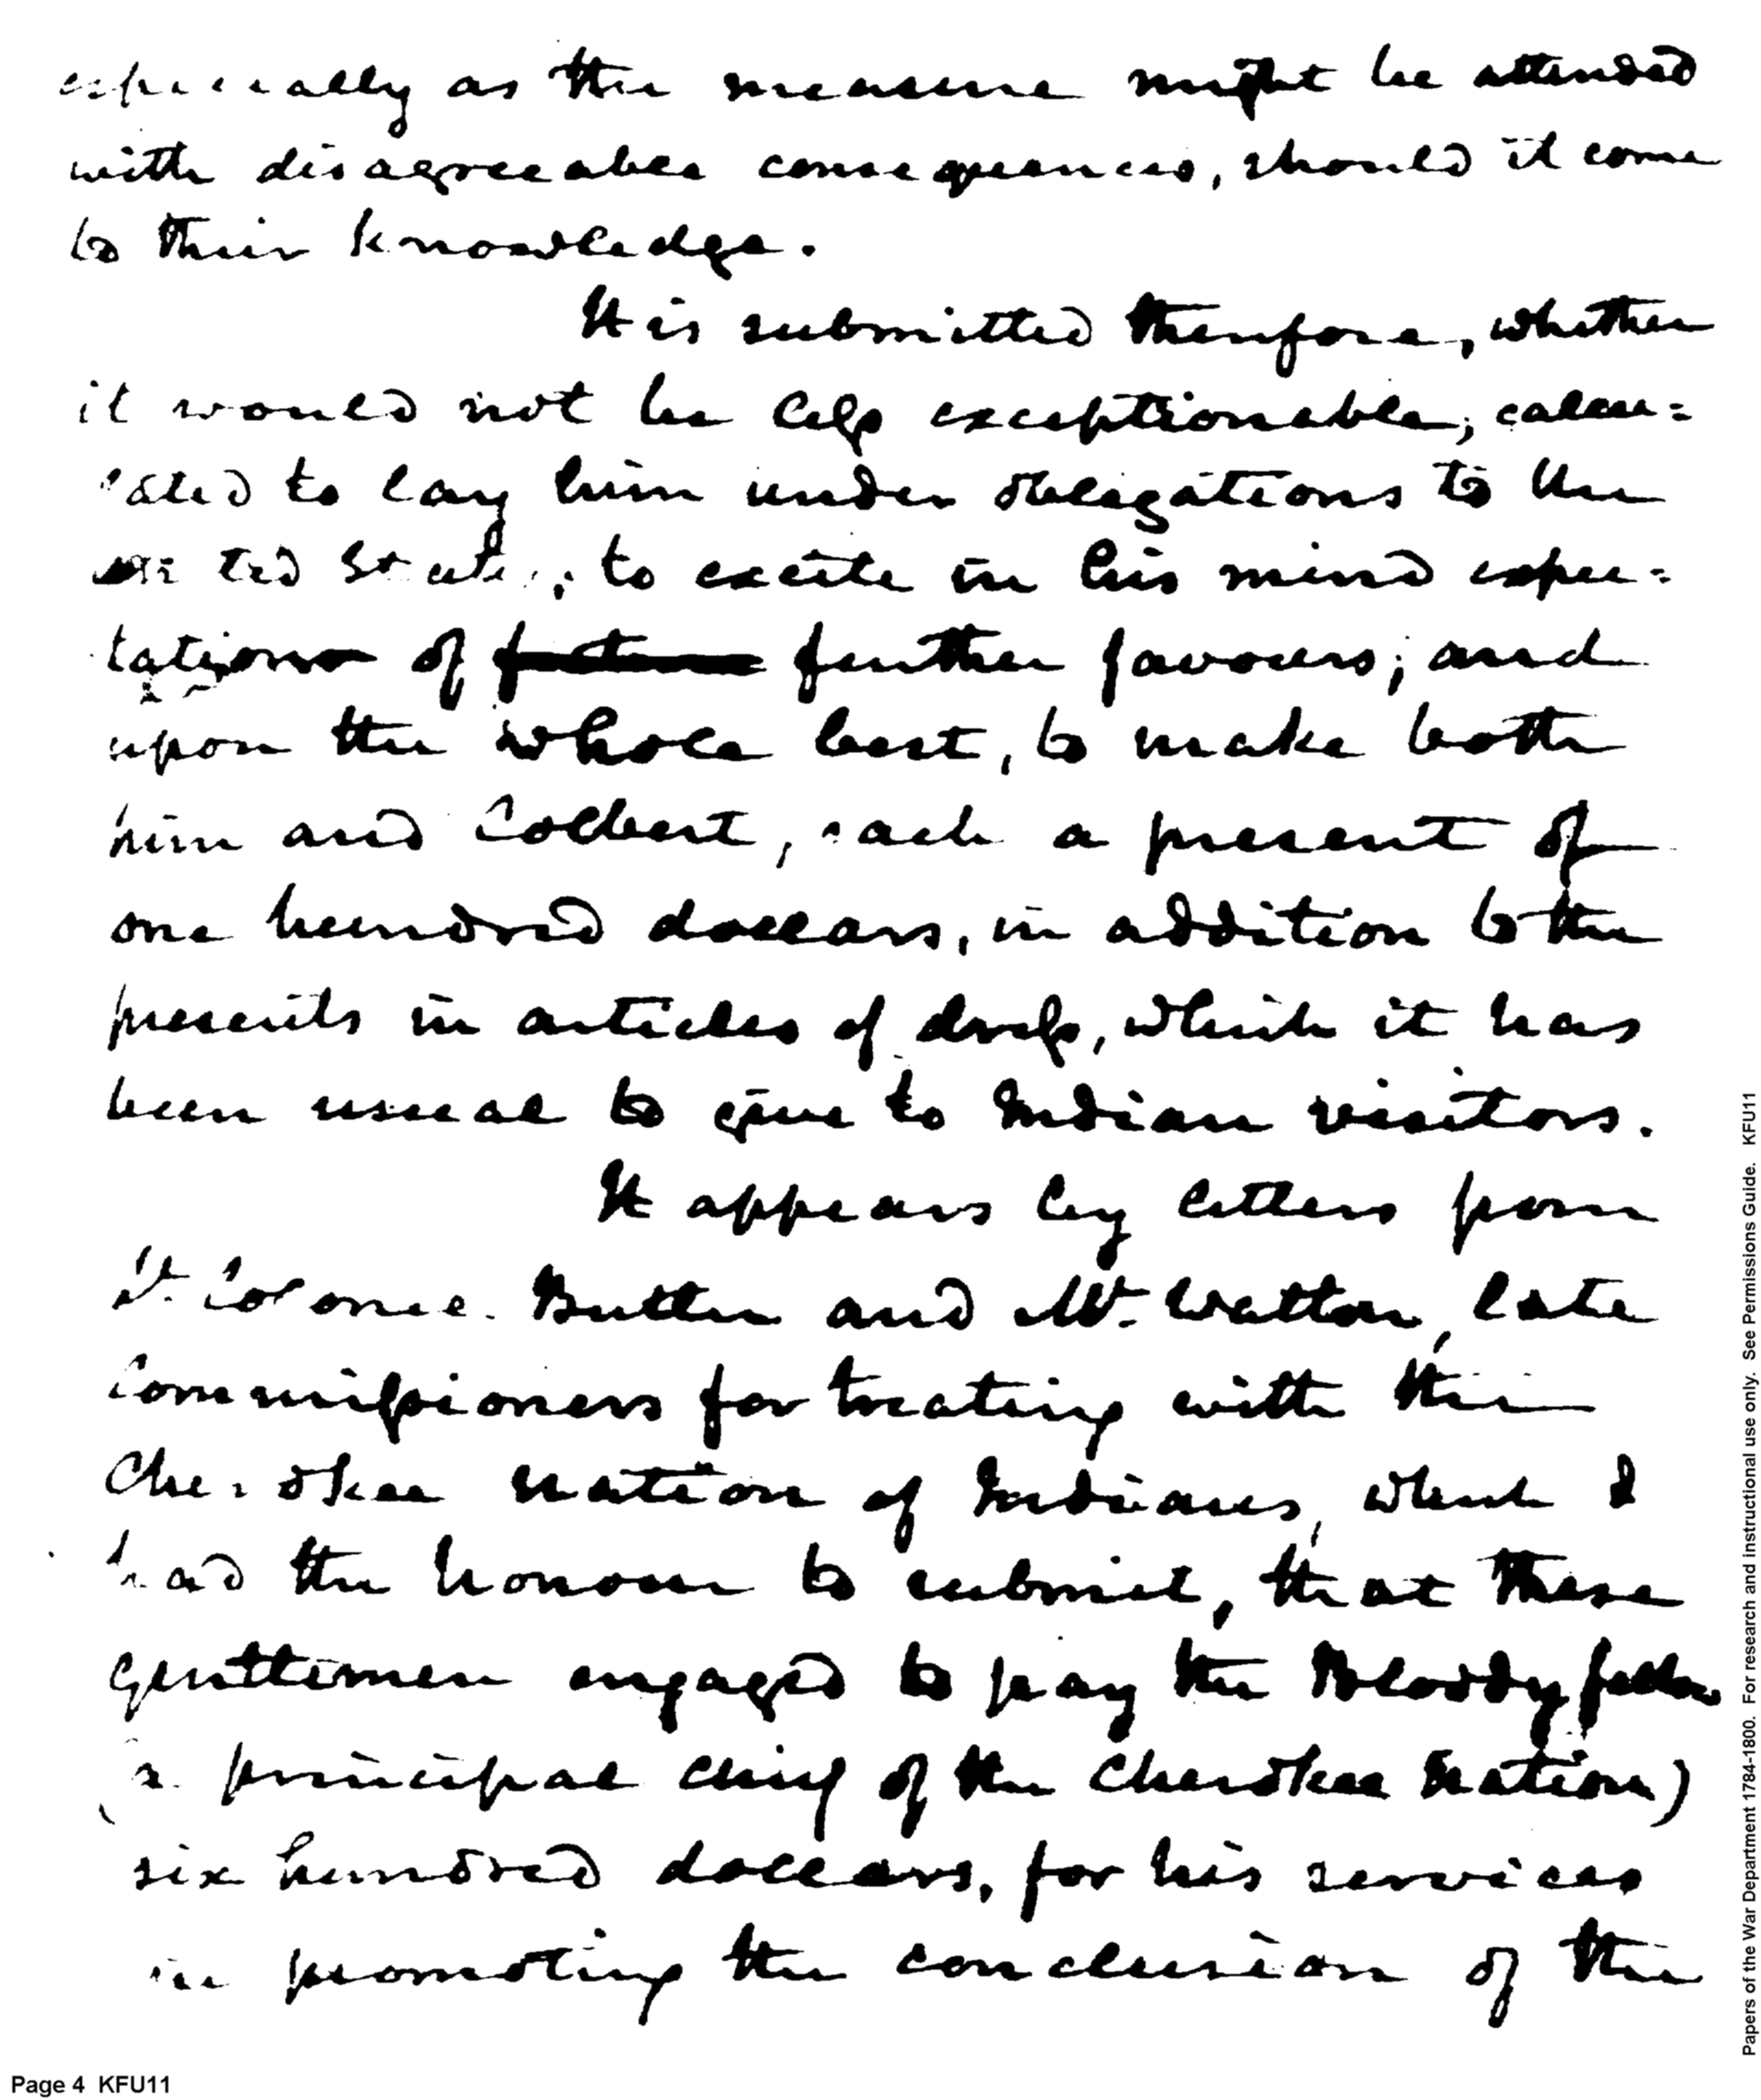 especially as the measure might be attended
with disagreeable consequences, should it come
to their knowledge.
It is submitted therefore, whether
it would not be less exceptionable; calcu=
lated to lay him under obligations to the
united States; to excite in his mind expec=
tations of further favours; and
upon the whole best, to make both
him and Colbert, each a present of
one hundred dollars, in addition to the
presents in articles of dress, which it has
been usual to give to Indian visitors.
It appears by letters from
Lt. Colonel Butler and Mr. Walton, late
Commissioners for treating with the
Cherokee nation of Indians, which I
had the honour to submit, that these
gentlemen engaged to pay the Bloody fellow
(a principal chief of the Cherokee nation)
six hundred dollars, for his services
in promoting the conclusion of the
Page 4 KFU11
Papers of the War Department 1784-1800. For research and instructional use only. See Permissions Guide. KFU11